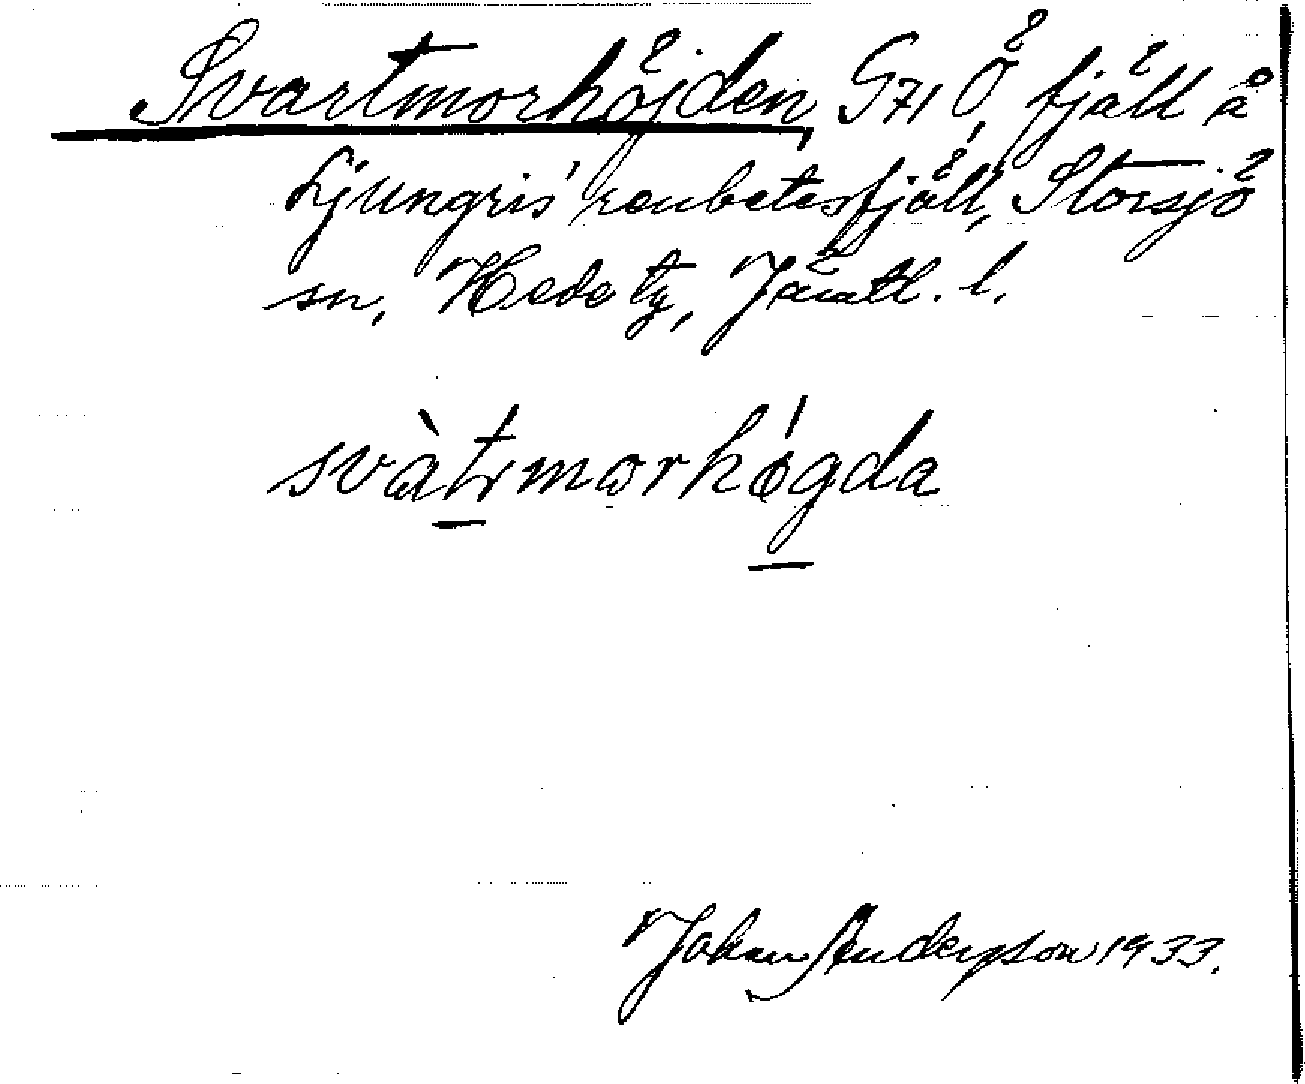 Svartmorhöjden, G71 Ö, fjäll å
Ljungris' renbetesfjäll, Storsjö
sn, Hede tg, Jämtl. l.
svàtmorhǿgda
Johan Anderson 1933.